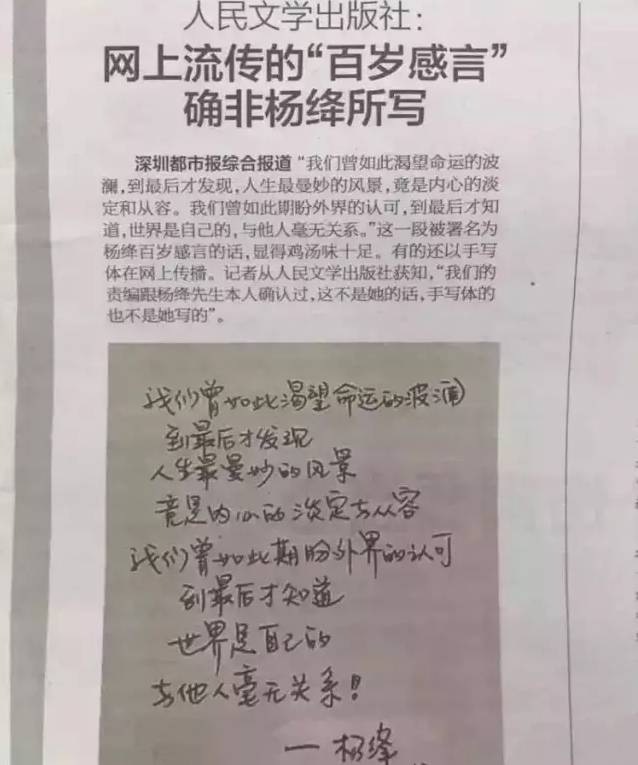 人民文学出版社：
网上流传的“百岁感言”
确非杨绛所写
深圳都市报综合报道 “我们曾如此渴望命运的波
澜，到最后才发现，人生最曼妙的风景，竟是内心的淡
定和从容。我们曾如此期盼外界的认可，到最后才知
道，世界是自己的，与他人毫无关系。”这一段被署名为
杨绛百岁感言的话，显得鸡汤味十足。有的还以手写
体在网上传播。记者从人民文学出版社获知，“我们的
责编跟杨绛先生本人确认过，这不是她的话，手写体的
也不是她写的”。
我们曾如此渴望命运的波澜
到最后才发现
人生最曼妙的风景
竟是内心的淡定与从容
我们曾如此期盼外界的认可
到最后才知道
世界是自己的
与他人毫无关系！
一 杨绛